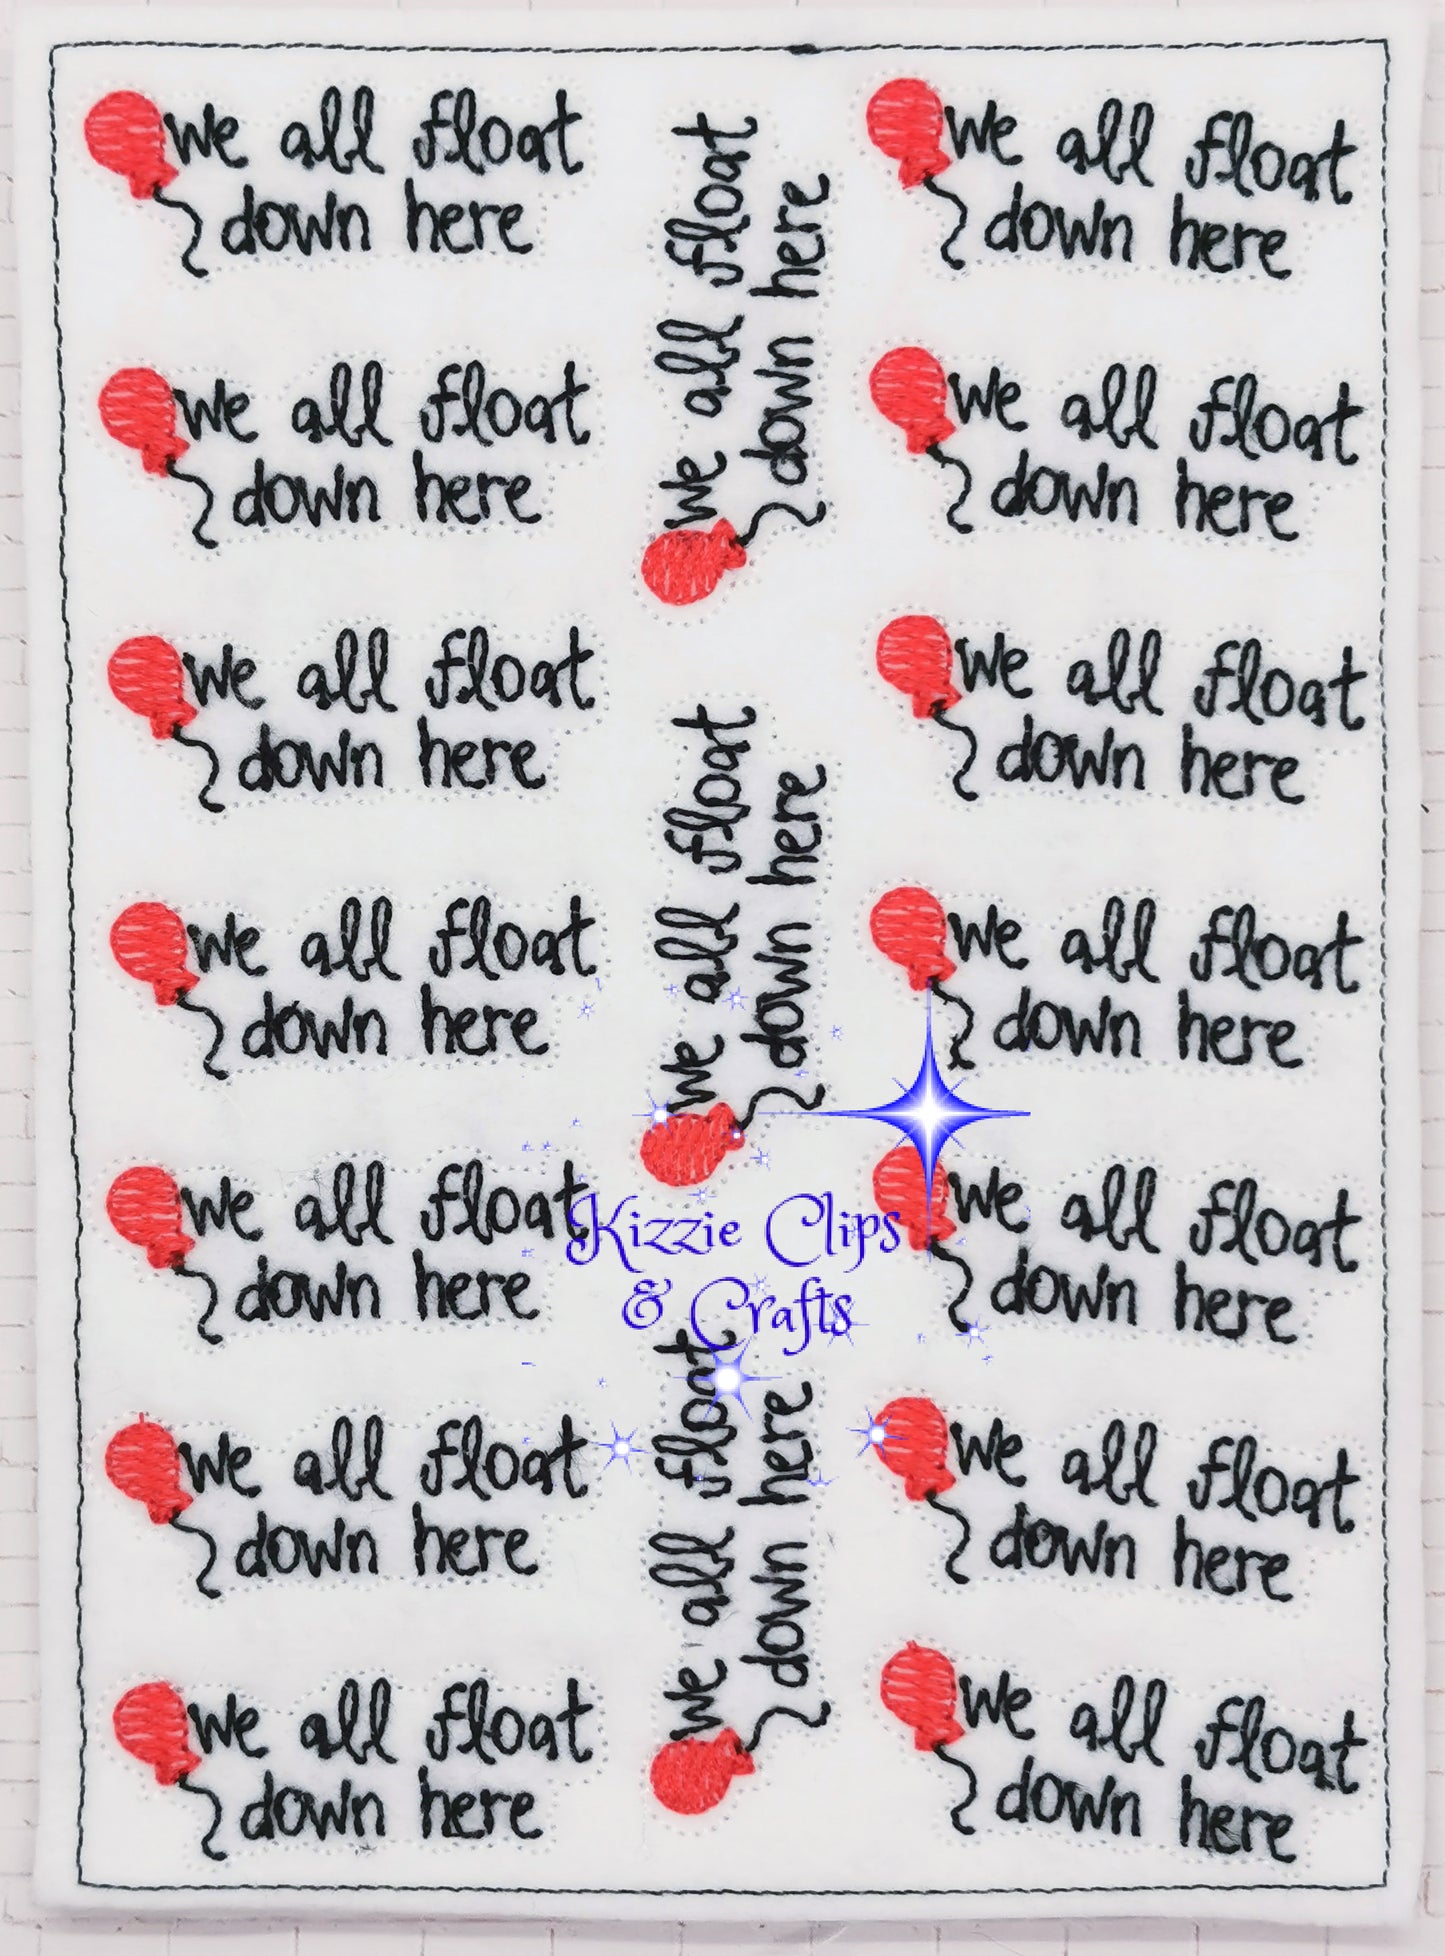 we all float
down here
we all float
down here
we all float
down here
we all float
down here
we all float
down here
we all float
down here
we all float
down here
we all float
down here
we all float
down here
we all float
down here
Kizzie Clips
& Crafts
we all float
down here
we all float
down here
we all float
down here
we all float
down here
we all float
down here
we all float
down here
we all float
down here